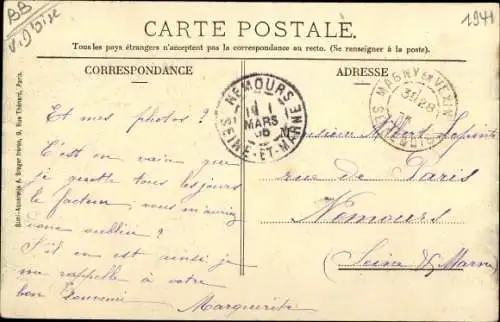 BB
1941
CARTE POSTALE.
Tous les pays étrangers n'acceptent pas la correspondance au recto. (Se renseigner à la poste).
CORRESPONDANCE
ADRESSE
NEMOURS
MARS
SEINE-ET-MARNE
MAGNY EN VEXIN
Et mes photos ?
C'est en vain que
je guette tous les jours
le facteur, vous m'auriez
donc oubliée ?
S'il en est ainsi je
me rappelle à votre
bon souvenir
Marguerite
Monsieur Albert
rue de Paris
Nemours
Seine & Marne